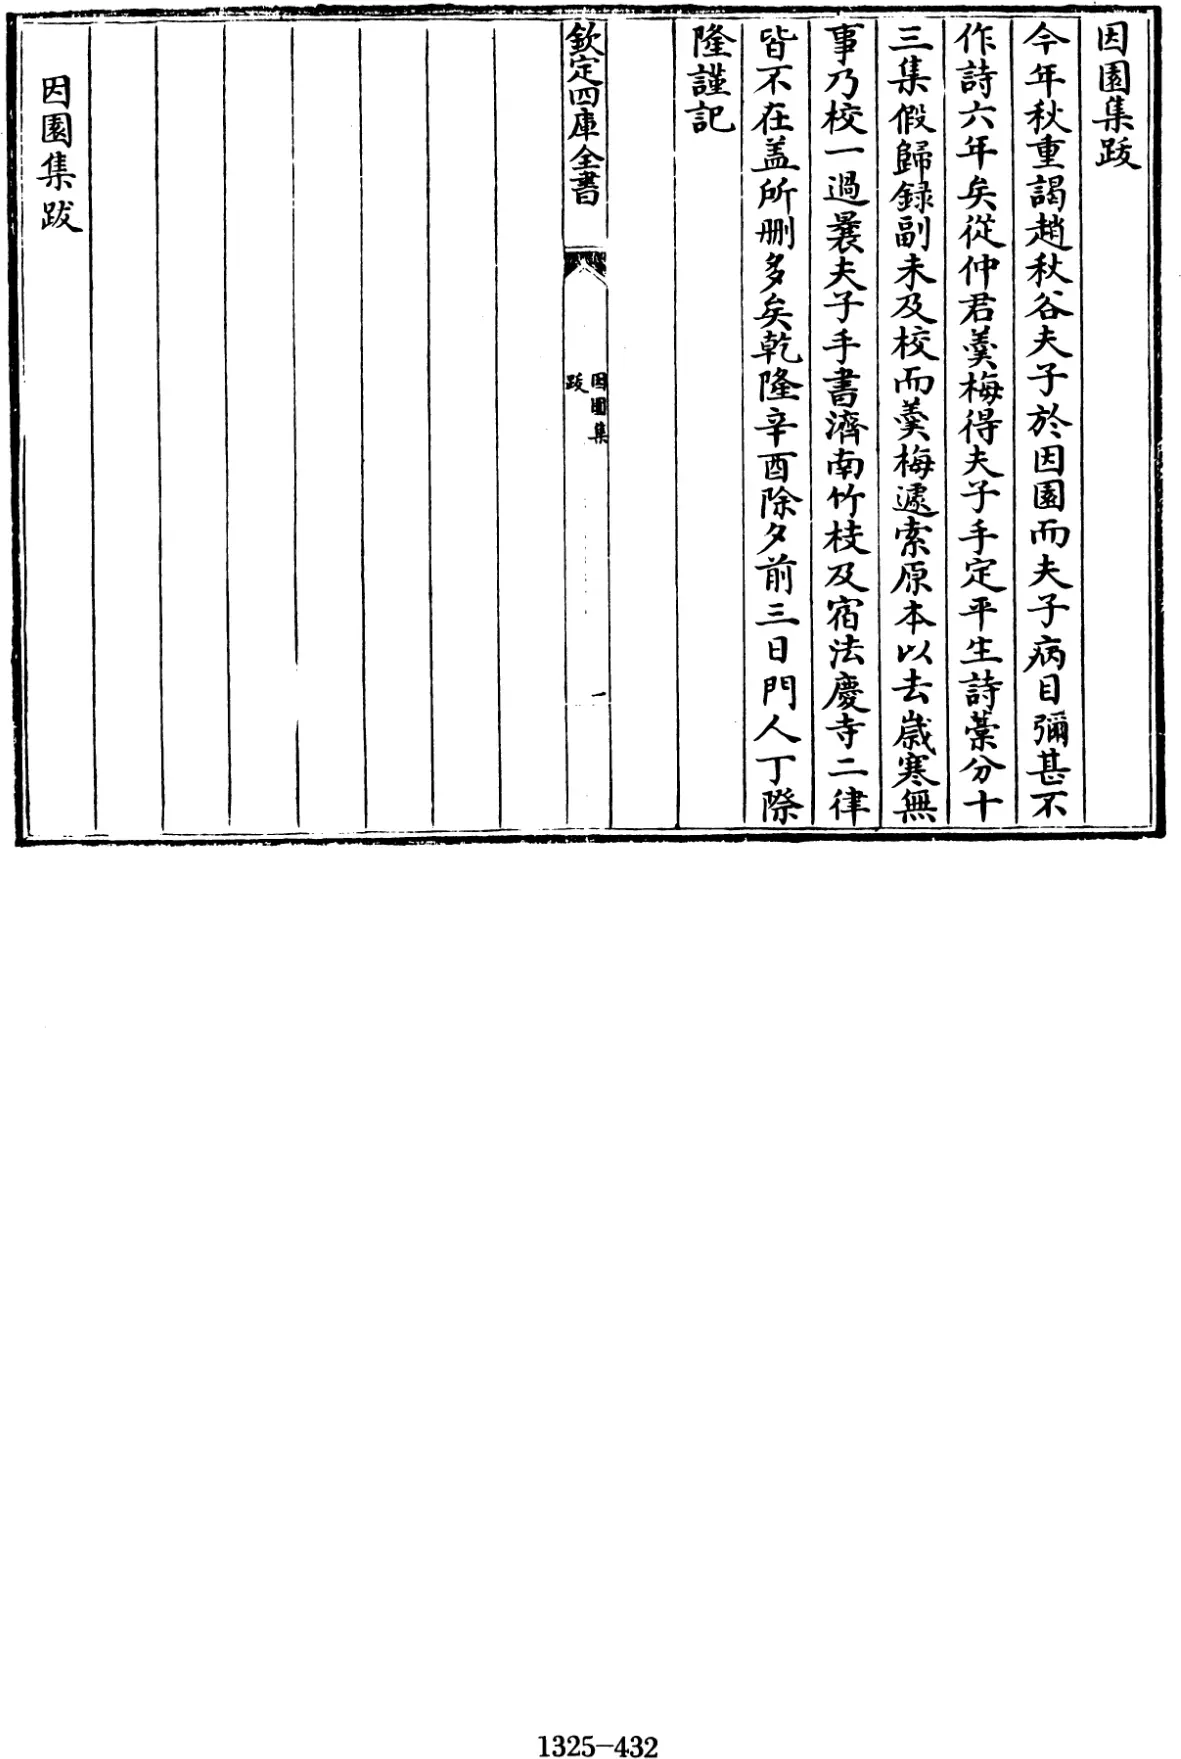 因園集跋
今年秋重謁趙秋谷夫子於因園而夫子病目彌甚不
作詩六年矣從仲君羹梅得夫子手定平生詩藁分十
三集假歸録副未及校而羹梅遽索原本以去歳寒無
事乃校一過曩夫子手書濟南竹枝及宿法慶寺二律
皆不在盖所刪多矣乾隆辛酉除夕前三日門人丁際
隆謹記
欽定四庫全書
因園集
跋
一
因園集跋
1325-432